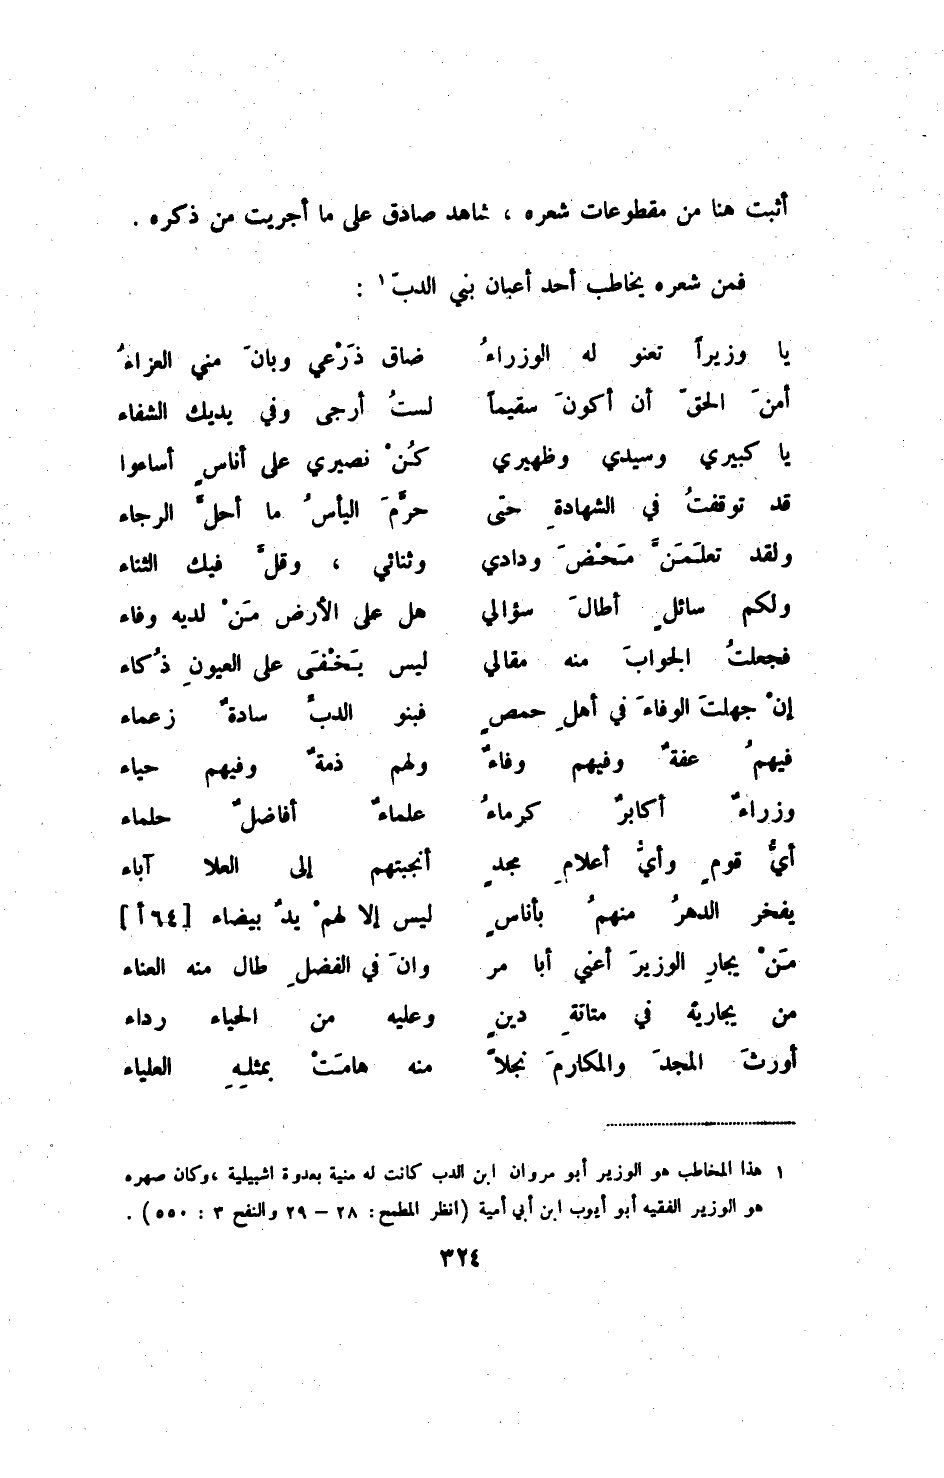 أثبت هنا من مقطوعات شعره ، شاهد صادق على ما أجريت من ذكره .
فمن شعره يخاطب أحد أعيان بني الدبّ١ :
يا وزيراً تعنو له الوزراءُ ضاق ذَرْعي وبانَ مني العزاءُ
أمنَ الحقّ أن أكونَ سقيماً لستُ أرجى وفي يديك الشفاء
يا كبيري وسيدي وظهيري كُنْ نصيري على أناسٍ أساءوا
قد توقفتُ في الشهادةِ حتى حرَّمَ اليأسُ ما أحلَّ الرجاء
ولقد تعلَمَنَّ مَحْضَ ودادي وثنائي ، وقلَّ فيك الثناء
ولكم سائلٍ أطالَ سؤالي هل على الأرض مَنْ لديه وفاء
فجعلتُ الجوابَ منه مقالي ليس يَخْفَى على العيونِ ذُكاء
إنْ جهلتَ الوفاءَ في أهلِ حمصٍ فبنو الدبَّ سادةٌ زعماء
فيهمُ عفةٌ وفيهم وفاءٌ ولهم ذمةٌ وفيهم حياء
وزراءٌ أكابرٌ كرماءُ علماءٌ أفاضلٌ حلماء
أيُّ قومٍ وأيُّ أعلامِ مجدٍ أنجبتهم إلى العلا آباء
يفخر الدهرُ منهمُ بأناسٍ ليس إلا لهمْ يدٌ بيضاء [٦٤أ]
مَنْ يجارِ الوزيرَ أعني أبا مر وانَ في الفضلِ طال منه العناء
من يجاريهْ في متاتةِ دينٍ وعليه من الحياء رداء
أورثَ المجدَ والمكارمَ نجلاً منه هامَتْ بمثلِهِ العلياء
١ هذا المخاطب هو الوزير أبو مروان ابن الدب كانت له منية بعدوة اشبيلية ،وكان صهره
هو الوزير الفقيه أبو أيوب ابن أبي أمية (انظر المطمح: ٢٨ – ٢٩ والنفح ٣ : ٥٥٠) .
٣٢٤